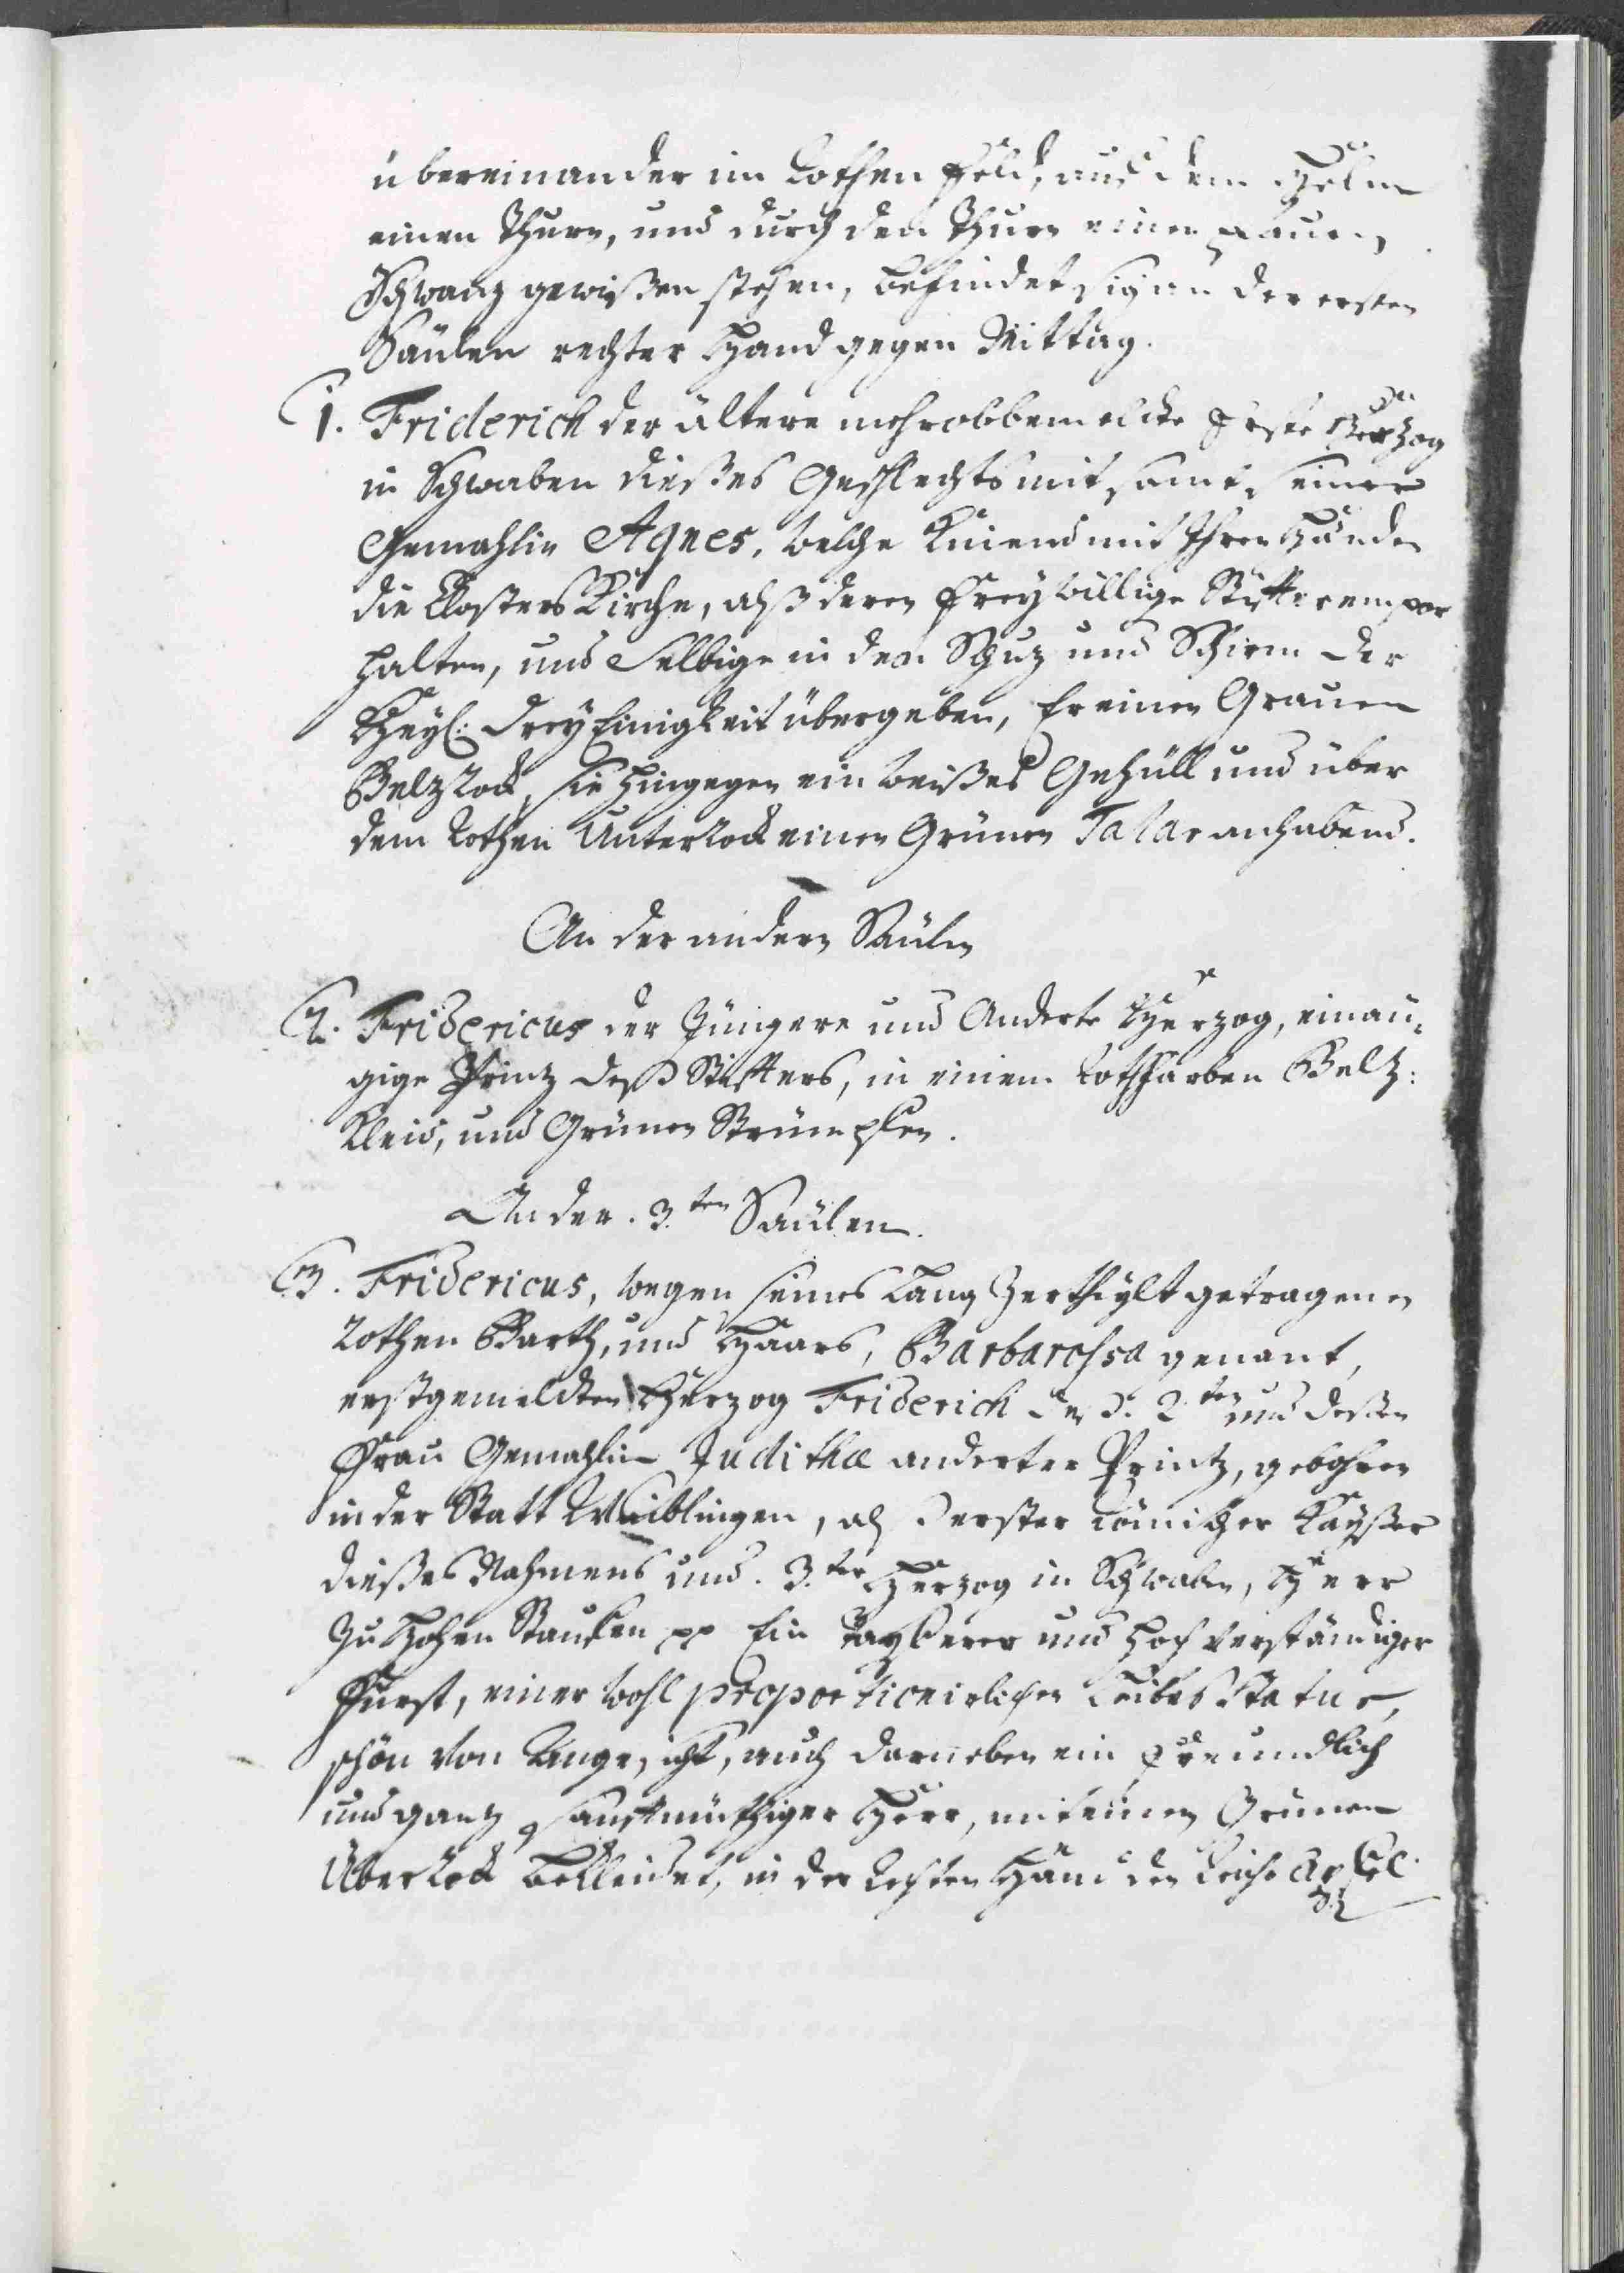 übereinander im Rothen Feld, aus dem Helm
einen Thurn, und durch den Thurn einen Pfauen
Schwanz gewißen stehen, befindet sich an der ersten
Säulen rechter Hand gegen Mittag.
1. Friderich der ältere mehrobbemelte Erste Herzog
in Schwaben dießes Geschlechts mit samt seiner
Gemahlin Agnes, welche Knieend mit Ihren Händen
die Closters Kirche, alß deren Freywillige Stiffter empor
halten, und Selbige in den Schuz und Schirm der
Heyl: Drey Einigkeit übergeben, Er einen Grauen
Belzrock, sie hingegen ein weißes Gehüll und über
dem Rothen Unterrock einen Grünen Talar anhabend.
An der andern Säulen
2. Fridericus der Jüngere und Anderte Herzog, einau-
gige Prinz deß Stiffters, in einem Rothfarben Beltz:
Kleid, und Grünen Strümpfen.
An der 3.ten Säulen.
3. Fridericus, wegen seines Lang Zertheylt getragenen
Rothen Barth, und Haars, Barbarossa genant,
erstgemeldten Herzog Friderich des 2ten und deßen
Frau Gemahlin Judithæ anderter Printz, gebohren
in der Statt Waiblingen, als Erster Römischer Kayßer
dießes Nahmens und 3.ter Herzog in Schwaben, Herr
zu Hohen Staufen pp Ein Tapferer und Hochverständiger
Fürst, einer wohl proportionirlichen Leibes Statur,
schön von Angesicht, auch darneben ein Freundlich
und ganz sanftmüthiger Herr, mit einem Grünen
Überrock bekleidet, in der Rechten Hand den Reichs Apfel